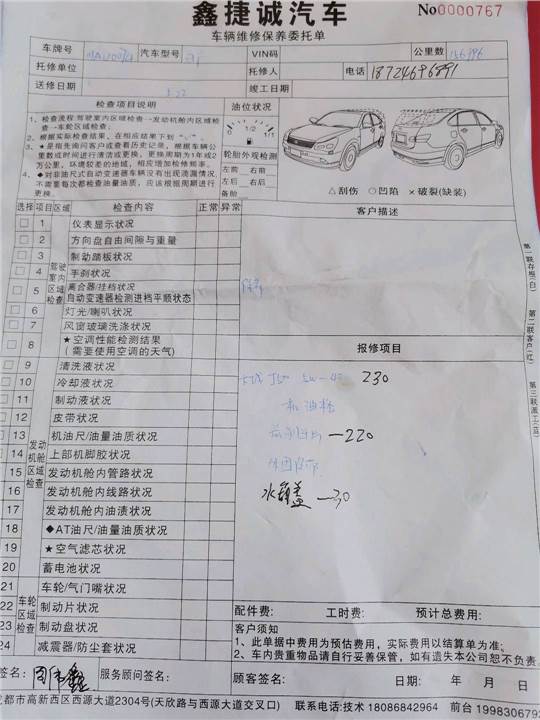 鑫捷诚汽车
No0000767
车辆维修保养委托单
车牌号 汽车型号 VIN码 公里数
托修单位 托修人 电话 18724696891
送修日期 1.22 竣工日期
检查项目说明
1、检查流程:驾驶室内区域检查-发动机舱内区域检查-车轮区域检查;
2、根据实际检查结果,在相应结果下到“√”。
3、★是指先询问客户或查看历史记录,根据车辆公里数或时间进行清洁或更换,更换周期为1年或2万公里,环境较差的地域,相应增加检修频率。
4、◆对非油尺式自动变速器车辆没有出现洩漏情况,不需要每次都检查油量油质,应该根据周期进行更换。
油位状况
0 1/2 1/1
轮胎外观检测
左前 右前
左后 右后
备胎
△刮伤 ○凹陷 ×破裂(缺装)
选择 项目 区域 检查内容 正常 异常
客户描述
驾驶室内区域检查
1 仪表显示状况
2 方向盘自由间隙与重量
3 制动踏板状况
4 手刹状况
5 离合器/挂档状况
自动变速器检测进档平顺状态
6 灯光/喇叭状况
7 风窗玻璃洗涤状况
8 ★空调性能检测结果
(需要使用空调的天气)
发动机舱区域检查
9 清洗液状况
10 冷却液状况
11 制动液状况
12 皮带状况
13 机油尺/油量油质状况
14 上部机脚胶状况
15 发动机舱内管路状况
16 发动机舱内线路状况
17 发动机舱内油渍状况
18 ◆AT油尺/油量油质状况
19 ★空气滤芯状况
20 蓄电池状况
车轮区域检查
21 车轮/气门嘴状况
22 制动片状况
23 制动盘状况
24 减震器/防尘套状况
保养
报修项目
5w-40 230
机油格
-220
水箱盖 -30
配件费: 工时费: 预计总费用:
客户须知
1、此单据中费用为预估费用,实际费用以结算单为准;
2、车内贵重物品请自行妥善保管,如有遗失本公司恕不负责
签名: 服务顾问签名: 顾客签名: 日期: 年 月 日
成都市高新西区西源大道2304号(天欣路与西源大道交叉口) 联系电话:技术 18086842964 前台 1998306792
第一联存根(白)
第二联客户(红)